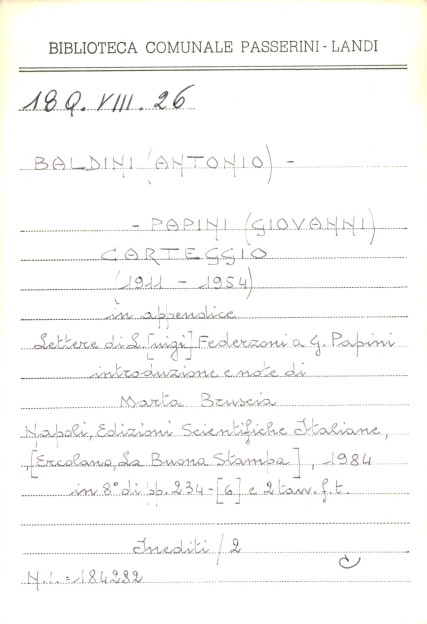 BIBLIOTECA COMUNALE PASSERINI - LANDI
18 Q. VIII. 26
BALDINI (ANTONIO) -
- PAPINI (GIOVANNI)
CARTEGGIO
(1911 - 1954)
in appendice
Lettere di L.[uigi] Federzoni a G. Papini
introduzione e note di
Marta Bruscia
Napoli, Edizioni Scientifiche Italiane,
,[Ercolano, La Buona Stampa], 1984
in 8° di pp. 234-[6] e 2 tav. f. t.
Inediti / 2
N. i. = 184282